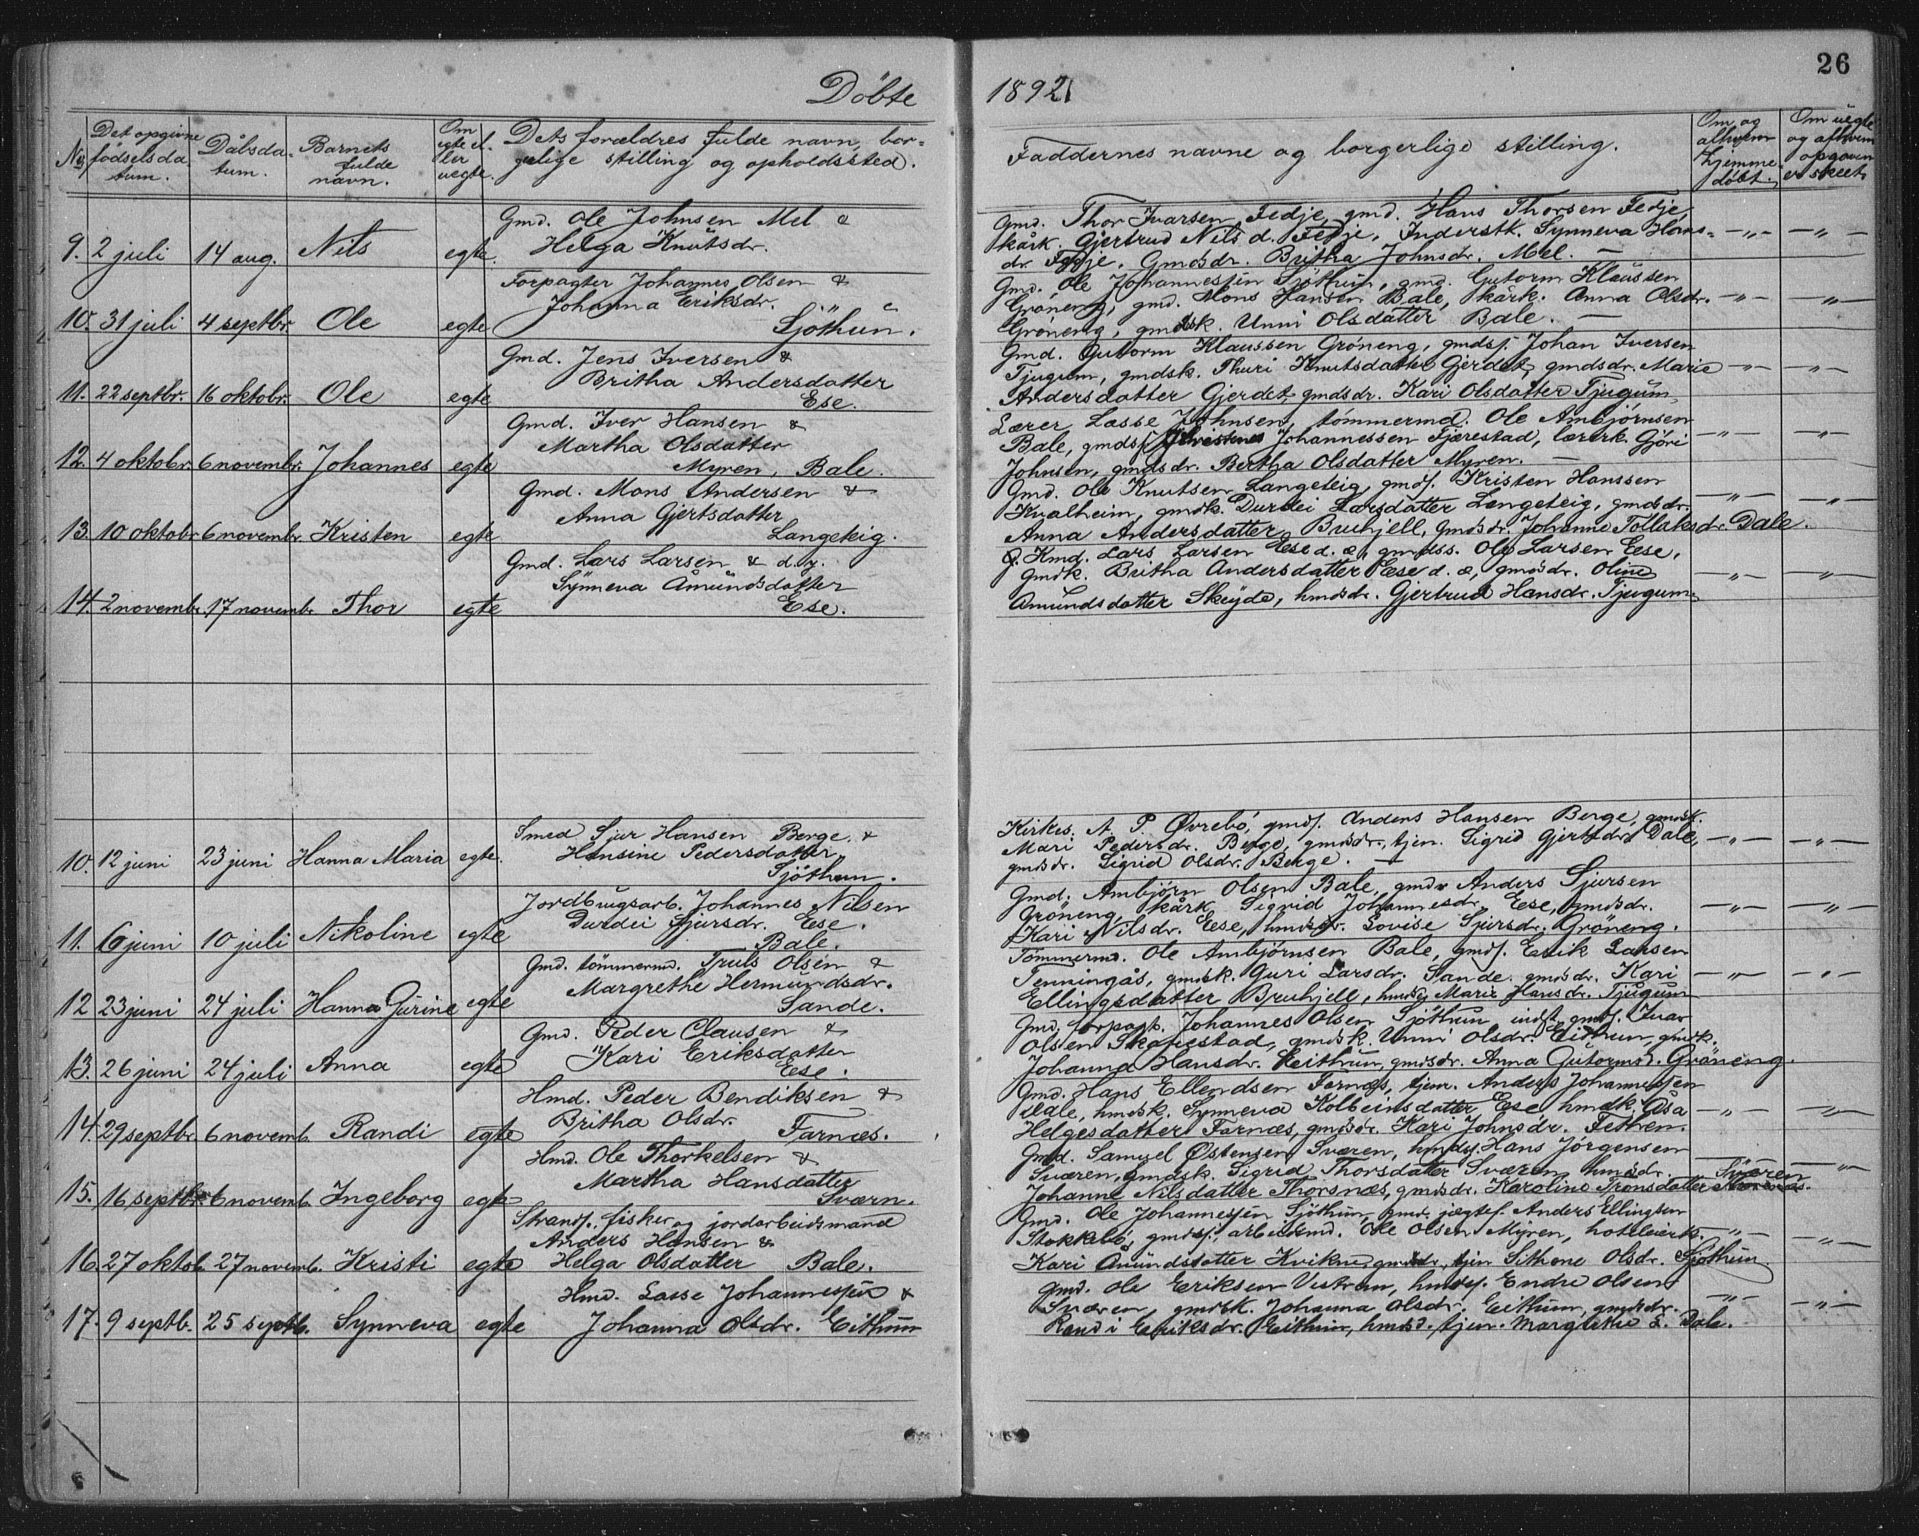 26
Döbte 1892
No
Det opgivne fødselsdatum.
Dåbsdatum.
Barnets fulde navn.
Om egte eller uegte.
Dets forældres fulde navn, borgerlige stilling og opholdssted.
Faddernes navne og borgerlige stilling.
Om og afhvem hjemmedöbt.
Om uegte og afhvem opgaven er skeet.
Gmd. Ole Johnsen Mel &
9. 2 juli 14 aug. Nils egte. Helga Knutsdr.
Gmd. Thor Ivarsen Fedje, gmd. Hans Thorsen Fedje,
kårk. Gjertrud Nilsd. Fedje, Inderstk. Synneva Hans-
dr. Fedje. Gmdsdr. Britha Johnsdr. Mel. —
Forpagter Johannes Olsen &
Johanna Eriksdr.
10. 31 juli 4 septbr. Ole egte Sjöthun.
Gmd. Ole Johannessen Sjöthun, gmd. Gutorm Klaussen
Gröneng, gmd. Mons Hansen Bale, kårk. Anna Olsdr.
Gröneng, gmdsk. Unni Olsdatter Bale. —
Gmd. Jens Iversen &
Britha Andersdatter
11. 22 septbr. 16 oktobr. Ole egte Ese.
Gmd. Gutorm Klaussen Gröneng, gmdss. Johan Iversen
Tjugum, gmdsk. Thuri Knutsdatter Gjerdet, gmdsdr. Marie
Andersdatter Gjerdet, gmdsdr. Kari Olsdatter Tjugum,
Gmd. Iver Hansen &
Martha Olsdatter
12. 4 oktobr. 6 novembr. Johannes egte Myren, Bale.
Lærer Lasse Johnsen, tömmermd. Ole Ambjörnsen
Bale, gmdss. Johannessen Fjærestad, lærerk. Gjöri
Johnsen, gmdsdr. Bertha Olsdatter Myren. —
Gmd. Mons Andersen &
Anna Gjertsdatter
13. 10 oktobr. 6 novembr. Kristen egte Langeteig.
Gmd. Ole Knutsen Langeteig, gmds. Kristen Hanssen
Kvalheim, gmdk. Durdei Larsdatter Langeteig, gmdsdr.
Anna Andersdatter Bruhjell, Gmdsdr. Johanne Tollaksdr. Dale.
Gmd. Lars Larsen & d.y.
Synneva Åmundsdatter
14. 2 novembr. 17 novembr. Thor egte Ese.
Kmd. Lars Larsen Eese d. æ, gmdss. Ole Larsen Eese,
Gmdk. Britha Andersdatter Eese d. æ, gmdsdr. Oline
Amundsdatter Skeyde, hmdsdr. Gjertrud Hansdr. Tjugum.
Smed Sjur Hansen Berge &
10. 12 juni 23 juni Hanna Maria egte. Hansine Pedersdatter
Sjöthun.
Kirkes. A. P. Øvrebö, gmds. Anders Hansen Berge, gmdsk.
Mari Pedersdr. Berge, gmdsdr. tjen. Sigrid Gjertsdr. Dale,
gmdsdr. Sigrid Olsdr. Berge. —
Jordbrugsarb. Johannes Nilsen
Durdei Sjursdr. Ese.
11. 6 juni 10 juli Nikoline egte Bale.
Gmd. Ambjörn Olsen Bale, gmds Anders Sjursen
Gröneng, kårk. Sigrid Johannesdr. Ese, gmdsdr.
Kari Nilsdr. Eese, hmdsdr. Lovise Sjursdr. Gröneng.
Gmd. tömmermd. Truls Olsen &
Margrethe Hermundsdr.
12 23 juni 24 juli Hanna Gurine egte Sande.
Tömmermd. Ole Ambjörnsen Bale, gmds. Eerik Larsen
Tenningås, gmdsk. Guri Larsdr. Sande. gmdsdr. Kari
Ellingsdatter Bruhjell, hmds Marie Hansdr. Tjugum
Gmd. Peder Clausen &
Kari Eriksdatter
13. 26 juni 24 juli Anna egte Ese.
Gmd. forpagt. Johannes Olsen Sjöthun, gmds. Ivar
Olsen Skarestad, gmdsk. Unni Olsdr. Eithun, gmdk.
Johanna Hansdr. Eeithun, gmdsdr. Anna Gutormsd. Gröneng.
Hmd. Peder Bendiksen &
Britha Olsdr.
14 29 septbr. 6 novemb. Randi egte Farnæs.
Gmd. Hans Ellendsen Fernæs, tjen. Anders Johannessen
Dale, hmdsk. Synneva Kolbeinsdatter Ese, hmdk. Åsa
Helgesdatter Farnæs, gmdsdr. Kari Johnsdr. Fethren.
Hmd. Ole Thorkelsen &
Martha Hansdatter
15. 16 septbr. 6 novemb. Ingeborg egte Sværn.
Gmd. Samuel Østensen Sværen, hmds. Hans Jörgensen
Sværen, Gmdsk. Sigrid Thorsdatter Sværen, hmdsdr.
Johanne Nilsdatter Thorsnæs, gmdsdr. Karoline Tronsdatter Sværen
Strands. fisker og jordarbeidsmand
Anders Hansen &
16. 27 oktob. 27 novemb. Kristi egte Helga Olsdatter Bale.
Gmd. Ole Johannessen Sjöthun, gmds. jægtef. Anders Ellingsen
Stokkebö, gmds. arbeidsmd. Ole Olsen Myren, hoteleierk.
Kari Åmundsdatter Kvikne, gmdsdr. tjen Sithone Olsdr. Sjöthun.
Hmd. Lasse Johannessen &
17. 9 septb. 25 septb. Synneva egte Johanna Olsdr. Eithun
Gmd. Ole Eriksen Vestrem, hmdss. Endre Olsen
Sværen, gmdsk. Johanna Olsdr. Eithun, gmdsdr.
Randi Eeriksdr. Eeithun, hmdsd. tjen. Margrethe E. Dale.